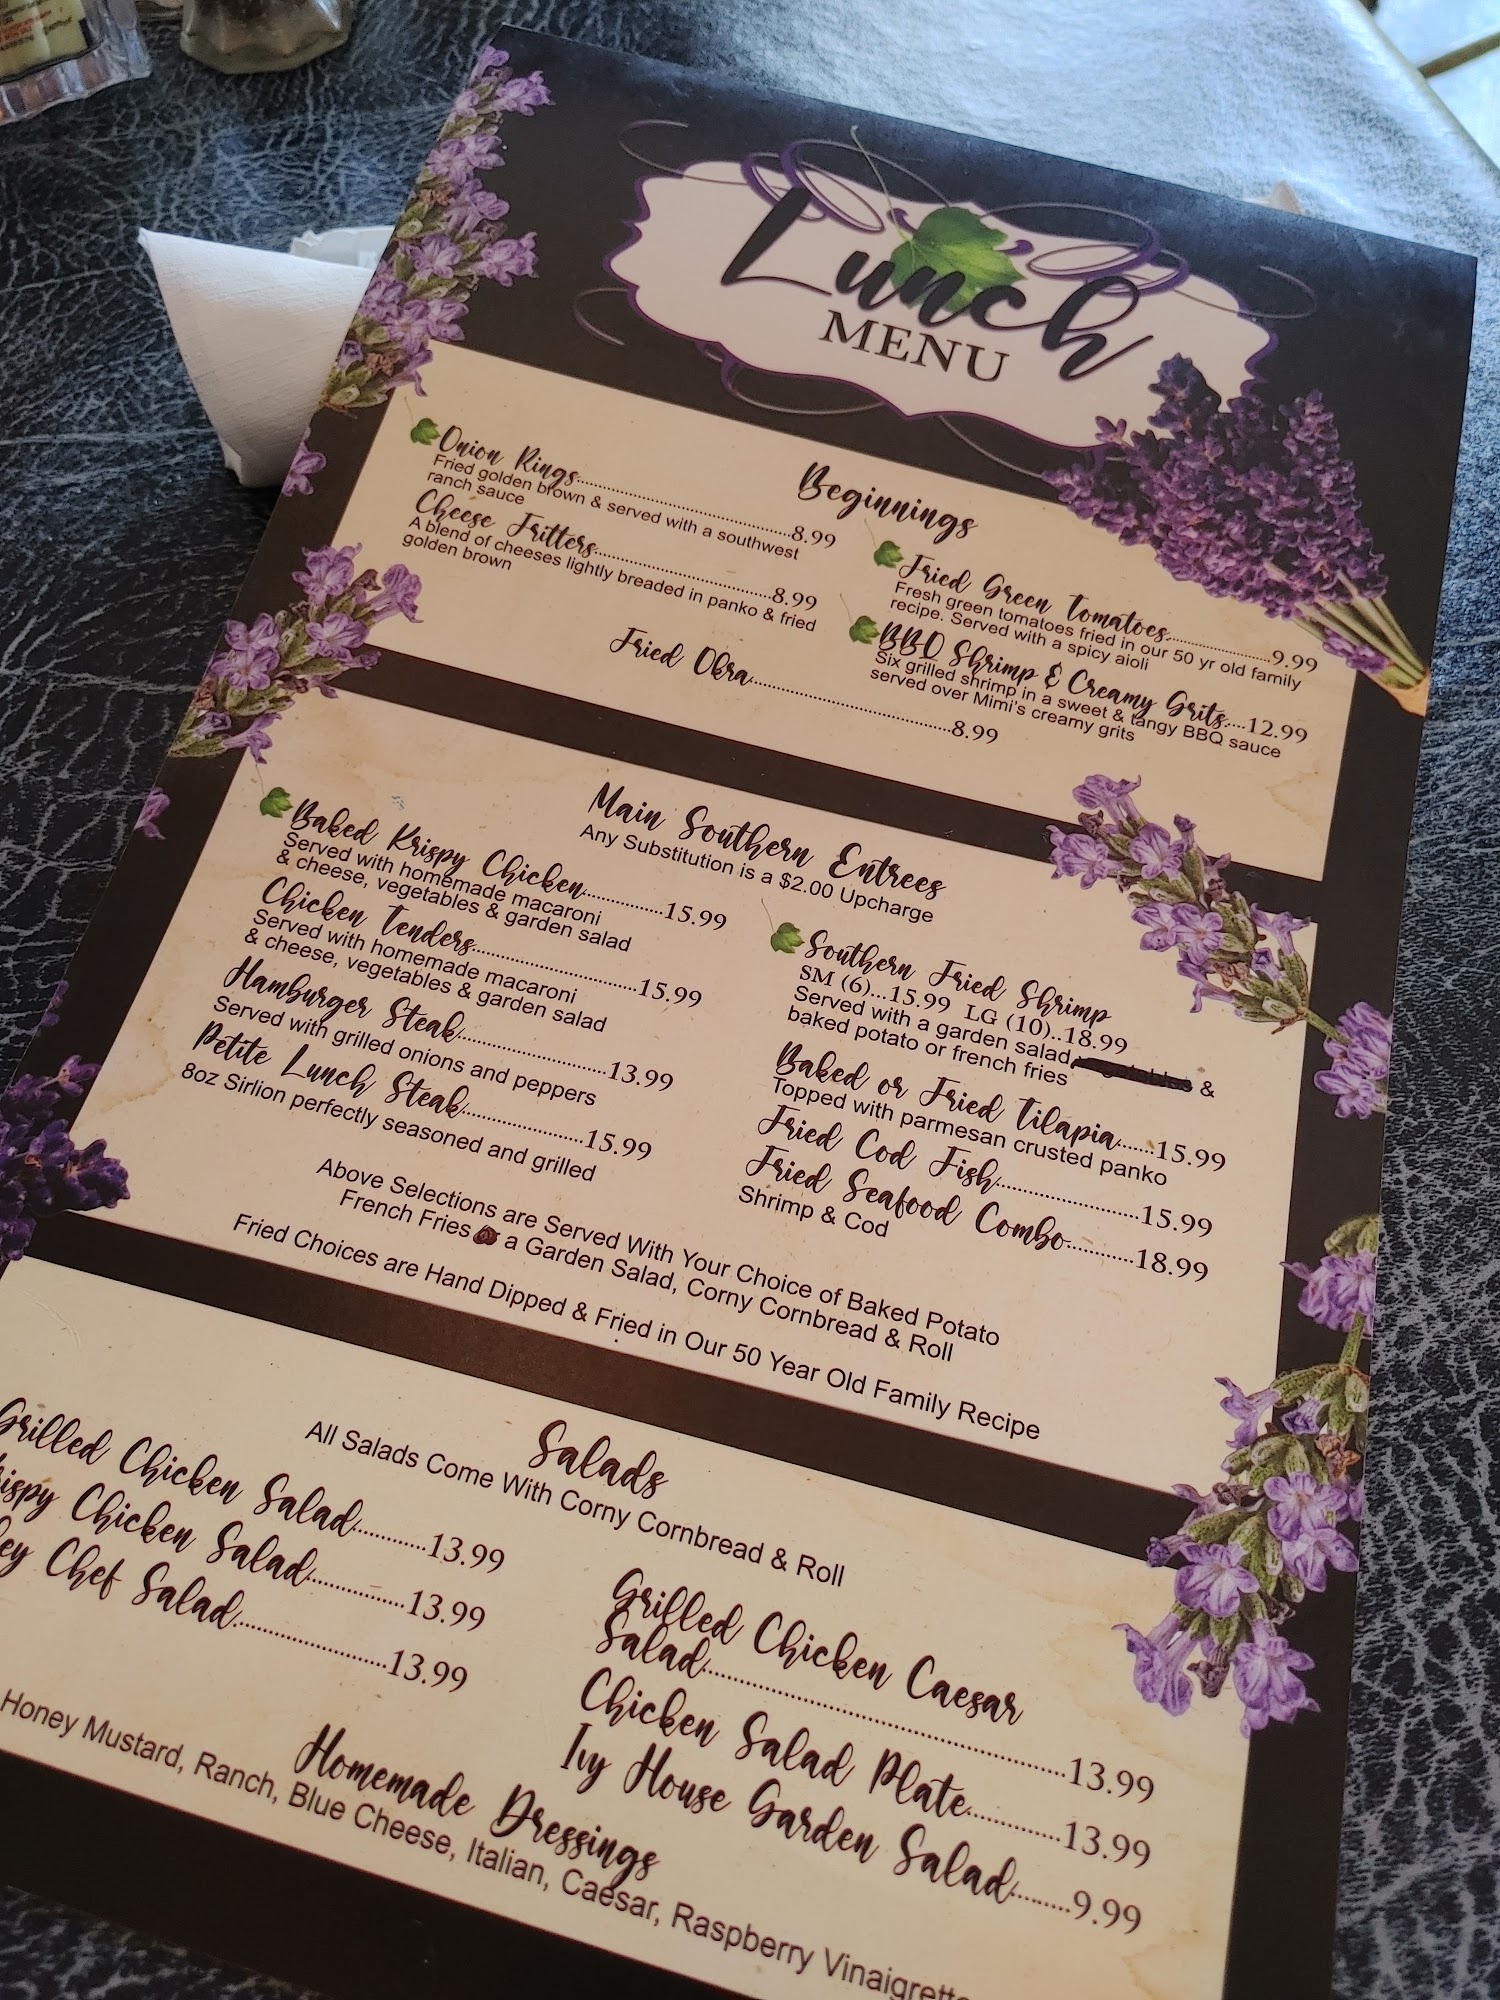 Lunch
MENU
Beginnings
Onion Rings........8.99
Fried golden brown & served with a southwest
ranch sauce
Cheese Fritters........8.99
A blend of cheeses lightly breaded in panko & fried
golden brown
Fried Green Tomatoes........9.99
Fresh green tomatoes fried in our 50 yr old family
recipe. Served with a spicy aioli
BBQ Shrimp & Creamy Grits....12.99
Six grilled shrimp in a sweet & tangy BBQ sauce
served over Mimi's creamy grits
Fried Okra........8.99
Main Southern Entrees
Any Substitution is a $2.00 Upcharge
Baked Krispy Chicken........15.99
Served with homemade macaroni
& cheese, vegetables & garden salad
Chicken Tenders........15.99
Served with homemade macaroni
& cheese, vegetables & garden salad
Hamburger Steak........13.99
Served with grilled onions and peppers
Petite Lunch Steak........15.99
8oz Sirlion perfectly seasoned and grilled
Southern Fried Shrimp
SM (6)...15.99 LG (10)..18.99
Served with a garden salad, &
baked potato or french fries
Baked or Fried Tilapia......15.99
Topped with parmesan crusted panko
Fried Cod Fish........15.99
Fried Seafood Combo........18.99
Shrimp & Cod
Above Selections are Served With Your Choice of Baked Potato
French Fries a Garden Salad, Corny Cornbread & Roll
Fried Choices are Hand Dipped & Fried in Our 50 Year Old Family Recipe
Salads
All Salads Come With Corny Cornbread & Roll
Grilled Chicken Salad........13.99
Chicken Salad........13.99
Chef Salad........13.99
Grilled Chicken Caesar
Salad........13.99
Chicken Salad Plate........13.99
Ivy House Garden Salad........9.99
Homemade Dressings
Honey Mustard, Ranch, Blue Cheese, Italian, Caesar, Raspberry